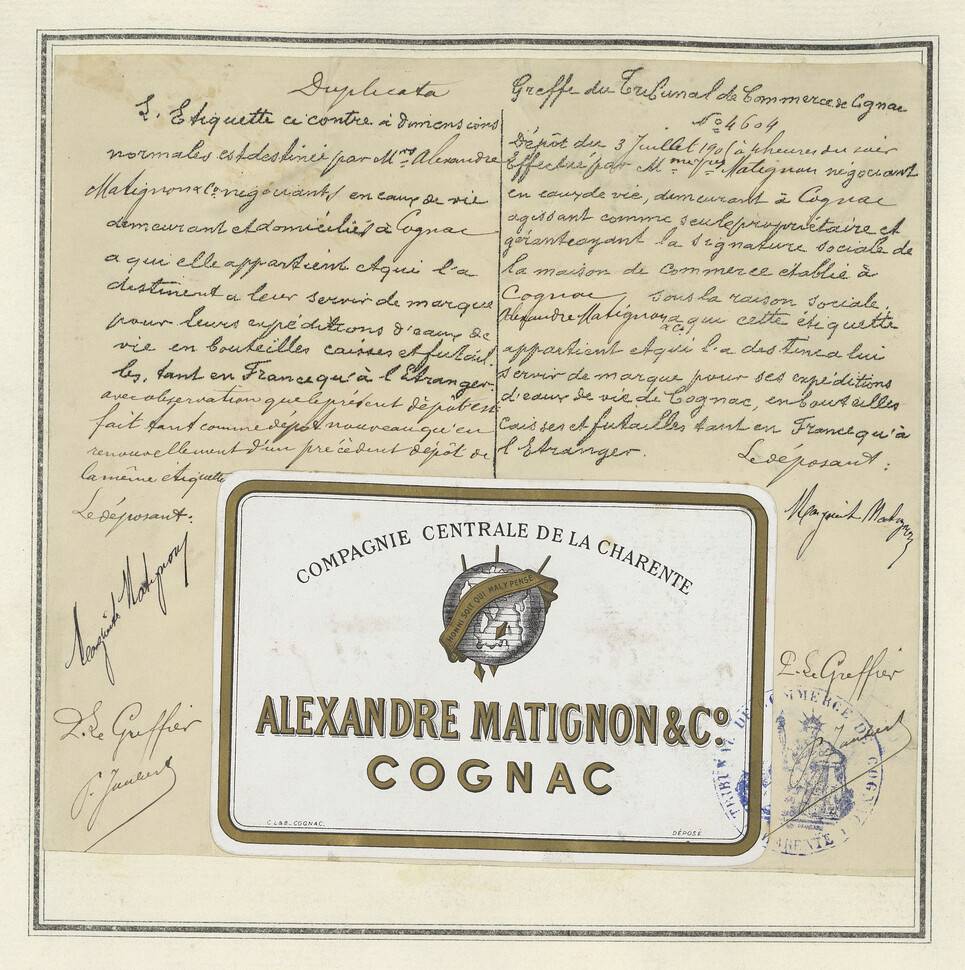 Duplicata
L'Etiquette ci contre à dimensions
normales est destinée par Mrs Alexandre
Matignon & Co négociants en eaux de vie
demeurant et domiciliés à Cognac
a qui elle appartient et qui l'a
destinent a leur servir de marque
pour leurs expéditions d'eaux de
vie en bouteilles caisses et futail
les, tant en France qu'à l'Etranger.
avec observation que le présent dépôt est
fait tant comme dépôt nouveau qu'en
renouvellement d'un précédent dépôt de
la même étiquette
Le déposant:
Matignon
P. Le Greffier
Greffe du Tribunal de Commerce de Cognac
No 4604
Dépôt du 3 Juillet à 4 heures du soir
Effectué par Matignon négociant
en eaux de vie, demeurant à Cognac
agissant comme seule propriétaire et
gérante ayant la signature sociale de
la maison de Commerce établie à
Cognac, sous la raison sociale.
Alexandre Matignon & Co a qui cette étiquette
appartient et qui l'a destine a lui
servir de marque pour ses expéditions
d'eaux de vie de Cognac, en bouteilles
caisses et futailles tant en France qu'à
l'Etranger.
Le déposant:
Matignon
P. Le Greffier
COMPAGNIE CENTRALE DE LA CHARENTE
HONNI SOIT QUI MAL Y PENSE
ALEXANDRE MATIGNON & Co.
COGNAC
C. LAB_COGNAC.
DÉPOSÉ
TRIBUNAL DE COMMERCE DE COGNAC
CHARENTE